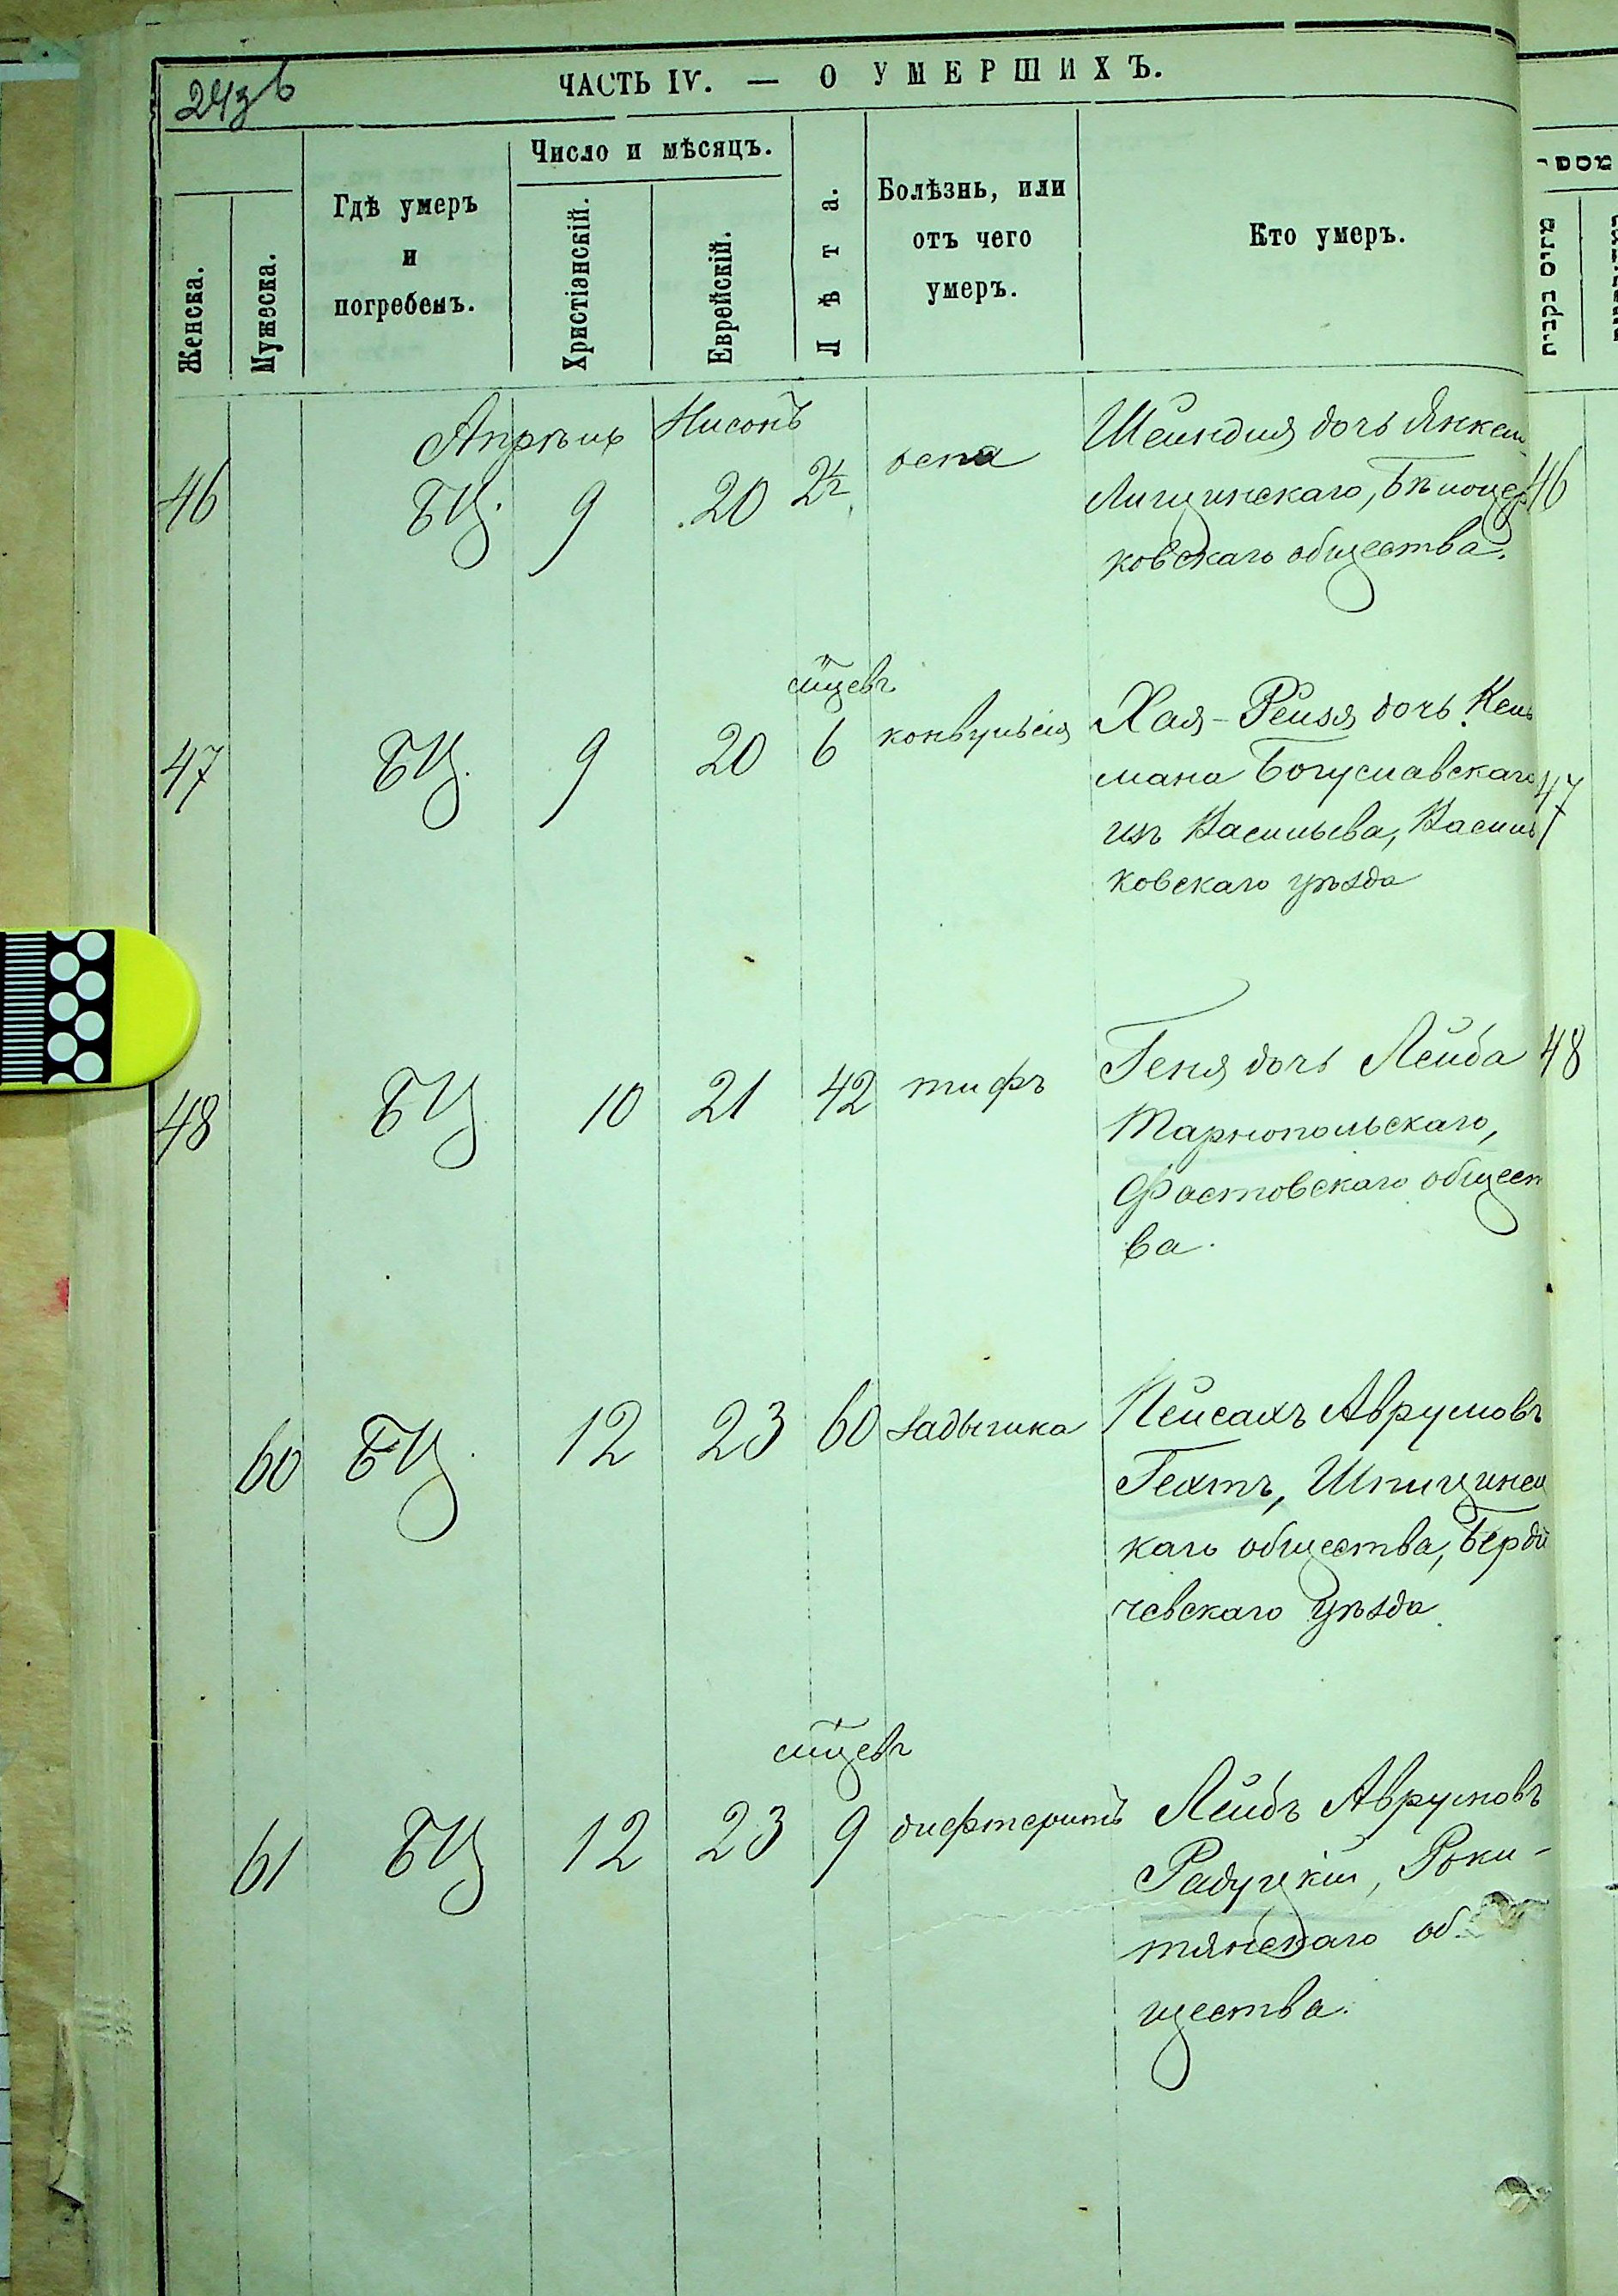 243б
ЧАСТЬ IV. — О УМЕРШИХЪ.
Женска.
Мужеска.
Гдѣ умеръ
и
погребенъ.
Число и мѣсяцъ.
Христіанскій.
Еврейскій.
Лѣта.
Болѣзнь, или
отъ чего
умеръ.
Кто умеръ.
מספר
מזוים נקבות
Апрѣль Нисонъ
46 БЦ. 9 20 2½ оспа Шейндля дочь Янкеля
Лищинскаго, Бѣлоцер 46
ковскаго общества.
мцевъ
47 БЦ. 9 20 6 конвульсія Хая-Рейзя дочь Кель
мана Богуславскаго 47
изъ Василькова, Василь
ковскаго уѣзда
48 БЦ 10 21 42 тифъ Геня дочь Лейба 48
Тарнопольскаго,
Фастовскаго общест
ва.
60 БЦ. 12 23 60 задышка Пейсахъ Аврумовъ
Гехтъ, Шпичинс
каго общества, Берди
чевскаго уѣзда
мцевъ
61 БЦ 12 23 9 дифтеритъ Лейбъ Аврумовъ
Радуцкій, Роки-
тянскаго об
щества.